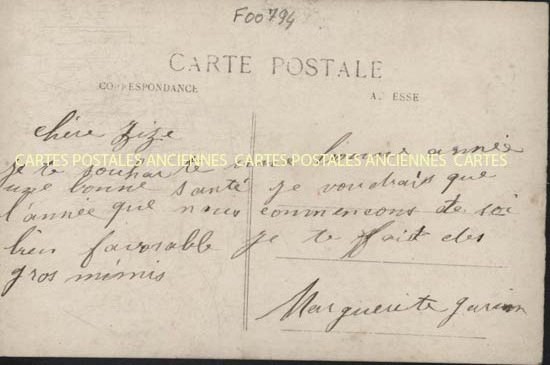 F00794
CARTE POSTALE
CORRESPONDANCE
A ESSE
chère Zize
je te souhaite une bonne année
CARTES POSTALES ANCIENNES CARTES POSTALES ANCIENNES CARTES
une bonne santé je voudrais que
l'année que nous commencons te soi
bien favorable je te fait des
gros mimis
Marguerite